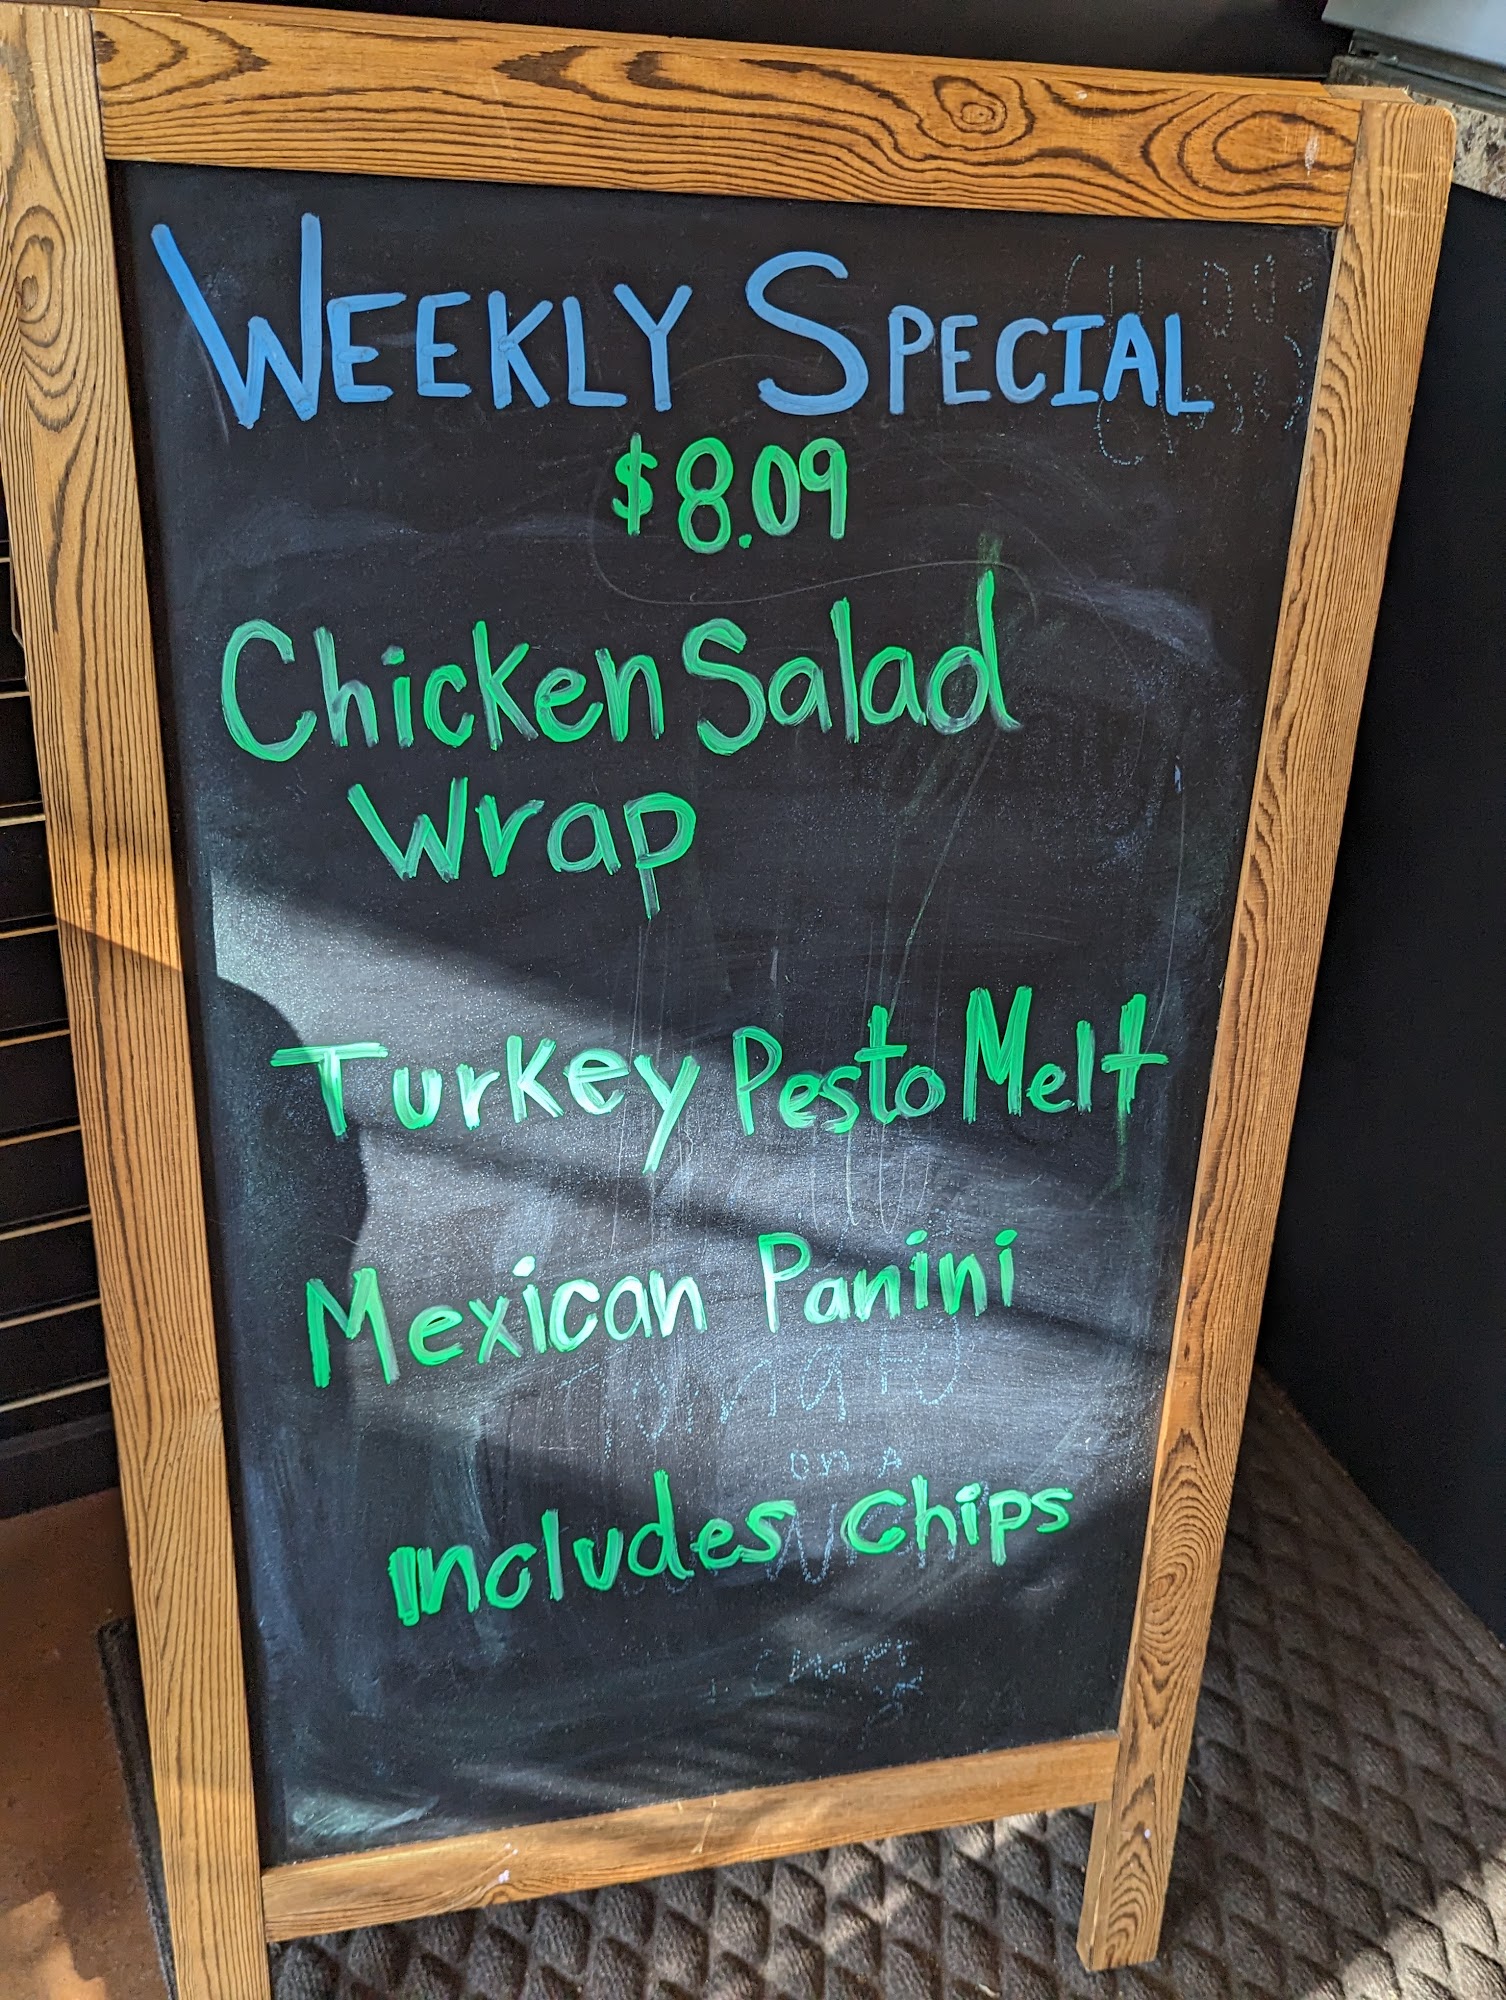 WEEKLY SPECIAL
$8.09
Chicken Salad
Wrap
Turkey Pesto Melt
Mexican Panini
on A
includes chips